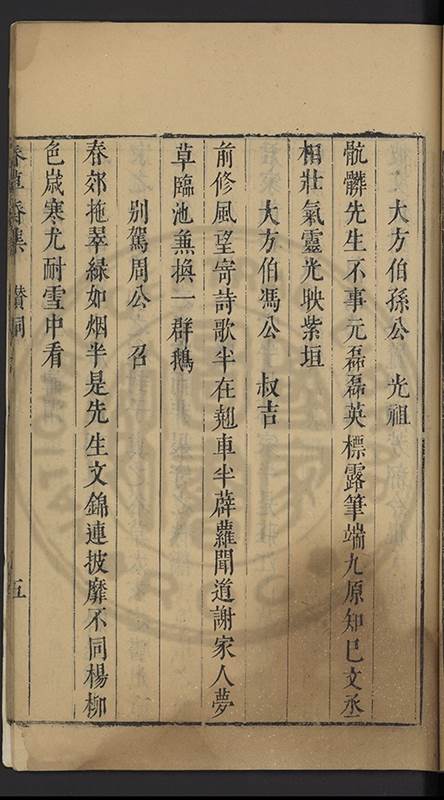 大方伯孫公　光祖
骯髒先生不事元磊磊英標露筆端九原知巳文丞
相壯氣靈光映紫垣
大方伯馮公　叔吉
前修風望寄詩歌半在𨌺車半薜蘿聞道謝家人夢
草臨池兼換一群鵝
别駕周公　召
春郊拖翠綠如烟半是先生文錦連披靡不同楊柳
色嵗寒尤耐雪中看
集　贊詞　五